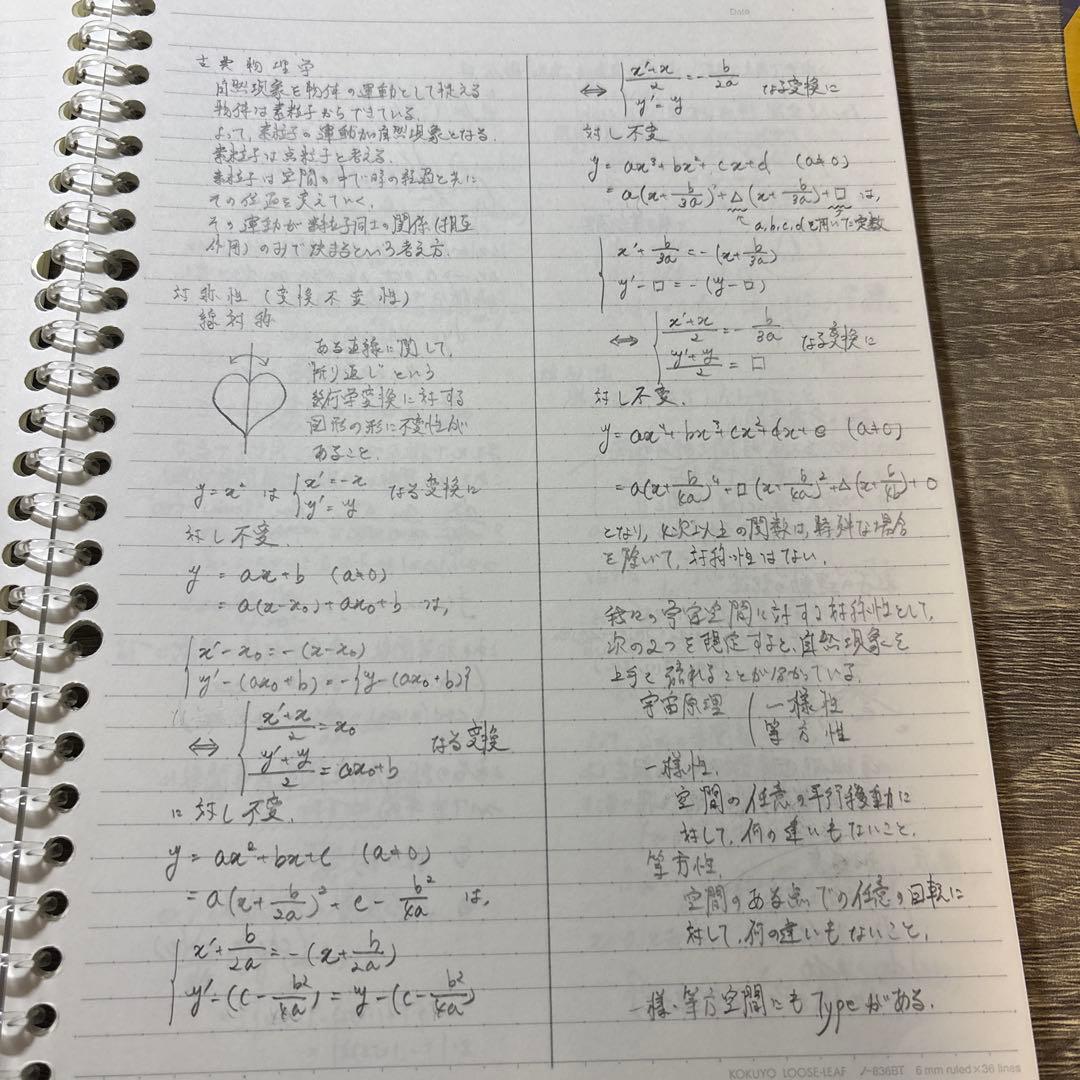 Date
古典物理学
自然現象を物体の運動として捉える
物体は素粒子からできている
よって、素粒子の運動が自然現象となる.
素粒子は点粒子と考える.
素粒子は空間の中で時の経過と共に
その位置を変えていく.
その運動が素粒子同士の関係(相互
作用)のみで決まるという考え方.
対称性(変換不変性)
線対称
ある直線に関して,
"折り返し"という
幾何学変換に対する
図形の形に不変性が
あること.
y=x² は { x'=-x なる変換に
y'=y
対し不変.
y = ax+b (a≠0)
= a(x-x₀)+ax₀+b は,
{ x'-x₀=-(x-x₀)
y'-(ax₀+b)=-{y-(ax₀+b)}
⇔ { (x'+x)/2=x₀ なる変換
(y'+y)/2=ax₀+b
に対し不変.
y=ax²+bx+c (a≠0)
=a(x+b/2a)²+c-b²/4a は,
{ x'+b/2a=-(x+b/2a)
y'-(c-b²/4a)=y-(c-b²/4a)
⇔ { (x'+x)/2=-b/2a なる変換に
y'=y
対し不変
y=ax³+bx²+cx+d (a≠0)
=a(x+b/3a)³+△(x+b/3a)+□ は,
a,b,c,dを用いた定数
{ x'+b/3a=-(x+b/3a)
y'-□=-(y-□)
⇔ { (x'+x)/2=-b/3a なる変換に
(y'+y)/2=□
対し不変.
y=ax⁴+bx³+cx²+dx+e (a≠0)
=a(x+b/4a)⁴+□(x+b/4a)²+△(x+b/4b)+○
となり, 4次以上の関数は, 特別な場合
を除いて, 対称性はない.
我々の宇宙空間に対する対称性として,
次の2つを規定すると, 自然現象を
上手く語れることが分かっている.
宇宙原理 { 一様性
等方性
一様性.
空間の任意の平行移動に
対して, 何の違いもないこと.
等方性.
空間のある点での任意の回転に
対して, 何の違いもないこと.
一様・等方空間にもTypeがある.
KOKUYO LOOSE-LEAF ノ-836BT 6 mm ruled×36 lines